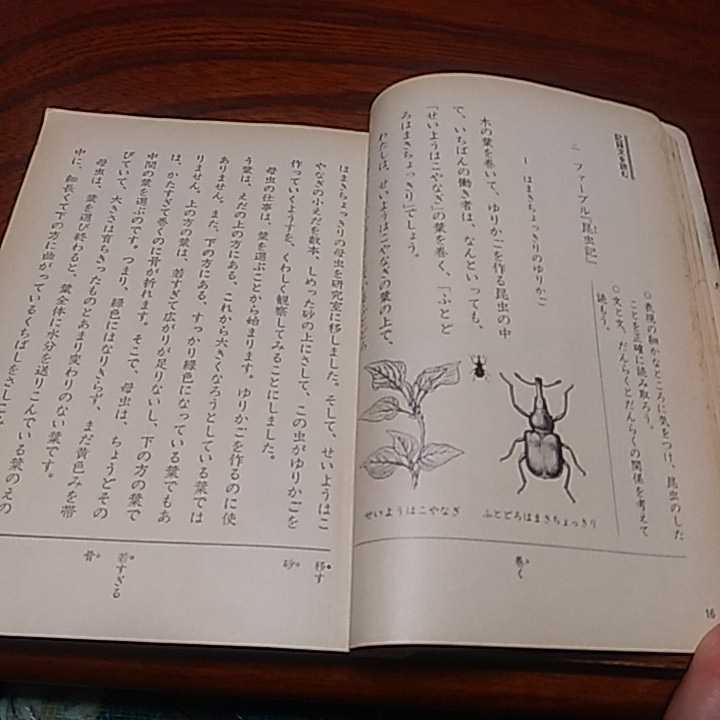 記録文を読む
二 ファーブル『昆虫記』
1 はまきちょっきりのゆりかご
○表現の細かなところに気をつけ、昆虫のした
ことを正確に読み取ろう。
○文と文、だんらくとだんらくの関係を考えて
読もう。
木の葉を巻いて、ゆりかごを作る昆虫の中
で、いちばんの働き者は、なんといっても、
「せいようはこやなぎ」の葉を巻く、「ふとど
ろはまきちょっきり」でしょう。
わたしは、せいようはこやなぎの葉の上で、
せいようはこやなぎ
ふとどろはまきちょっきり
巻く
16
はまきちょっきりの母虫を研究室に移しました。そして、せいようはこ
やなぎの小えだを数本、しめった砂の上にさして、この虫がゆりかごを
作っていくようすを、くわしく観察してみることにしました。
母虫の仕事は、葉を選ぶことから始まります。ゆりかごを作るのに使
う葉は、えだの上の方にある、これから大きくなろうとしている葉では
ありません。また、下の方にある、すっかり緑色になっている葉でもあ
りません。上の方の葉は、若すぎて広がりが足りないし、下の方の葉で
は、かたすぎて巻くのに骨が折れます。そこで、母虫は、ちょうどその
中間の葉を選ぶのです。つまり、緑色にはなりきらず、まだ黄色みを帯
びていて、大きさは育ちきったものとあまり変わりのない葉です。
母虫は、葉を選び終わると、葉全体に水分を送りこんでいる葉のえの
中に、細長くて下の方に曲がっているくちばしをさしこ
移す
砂
若すぎる
骨